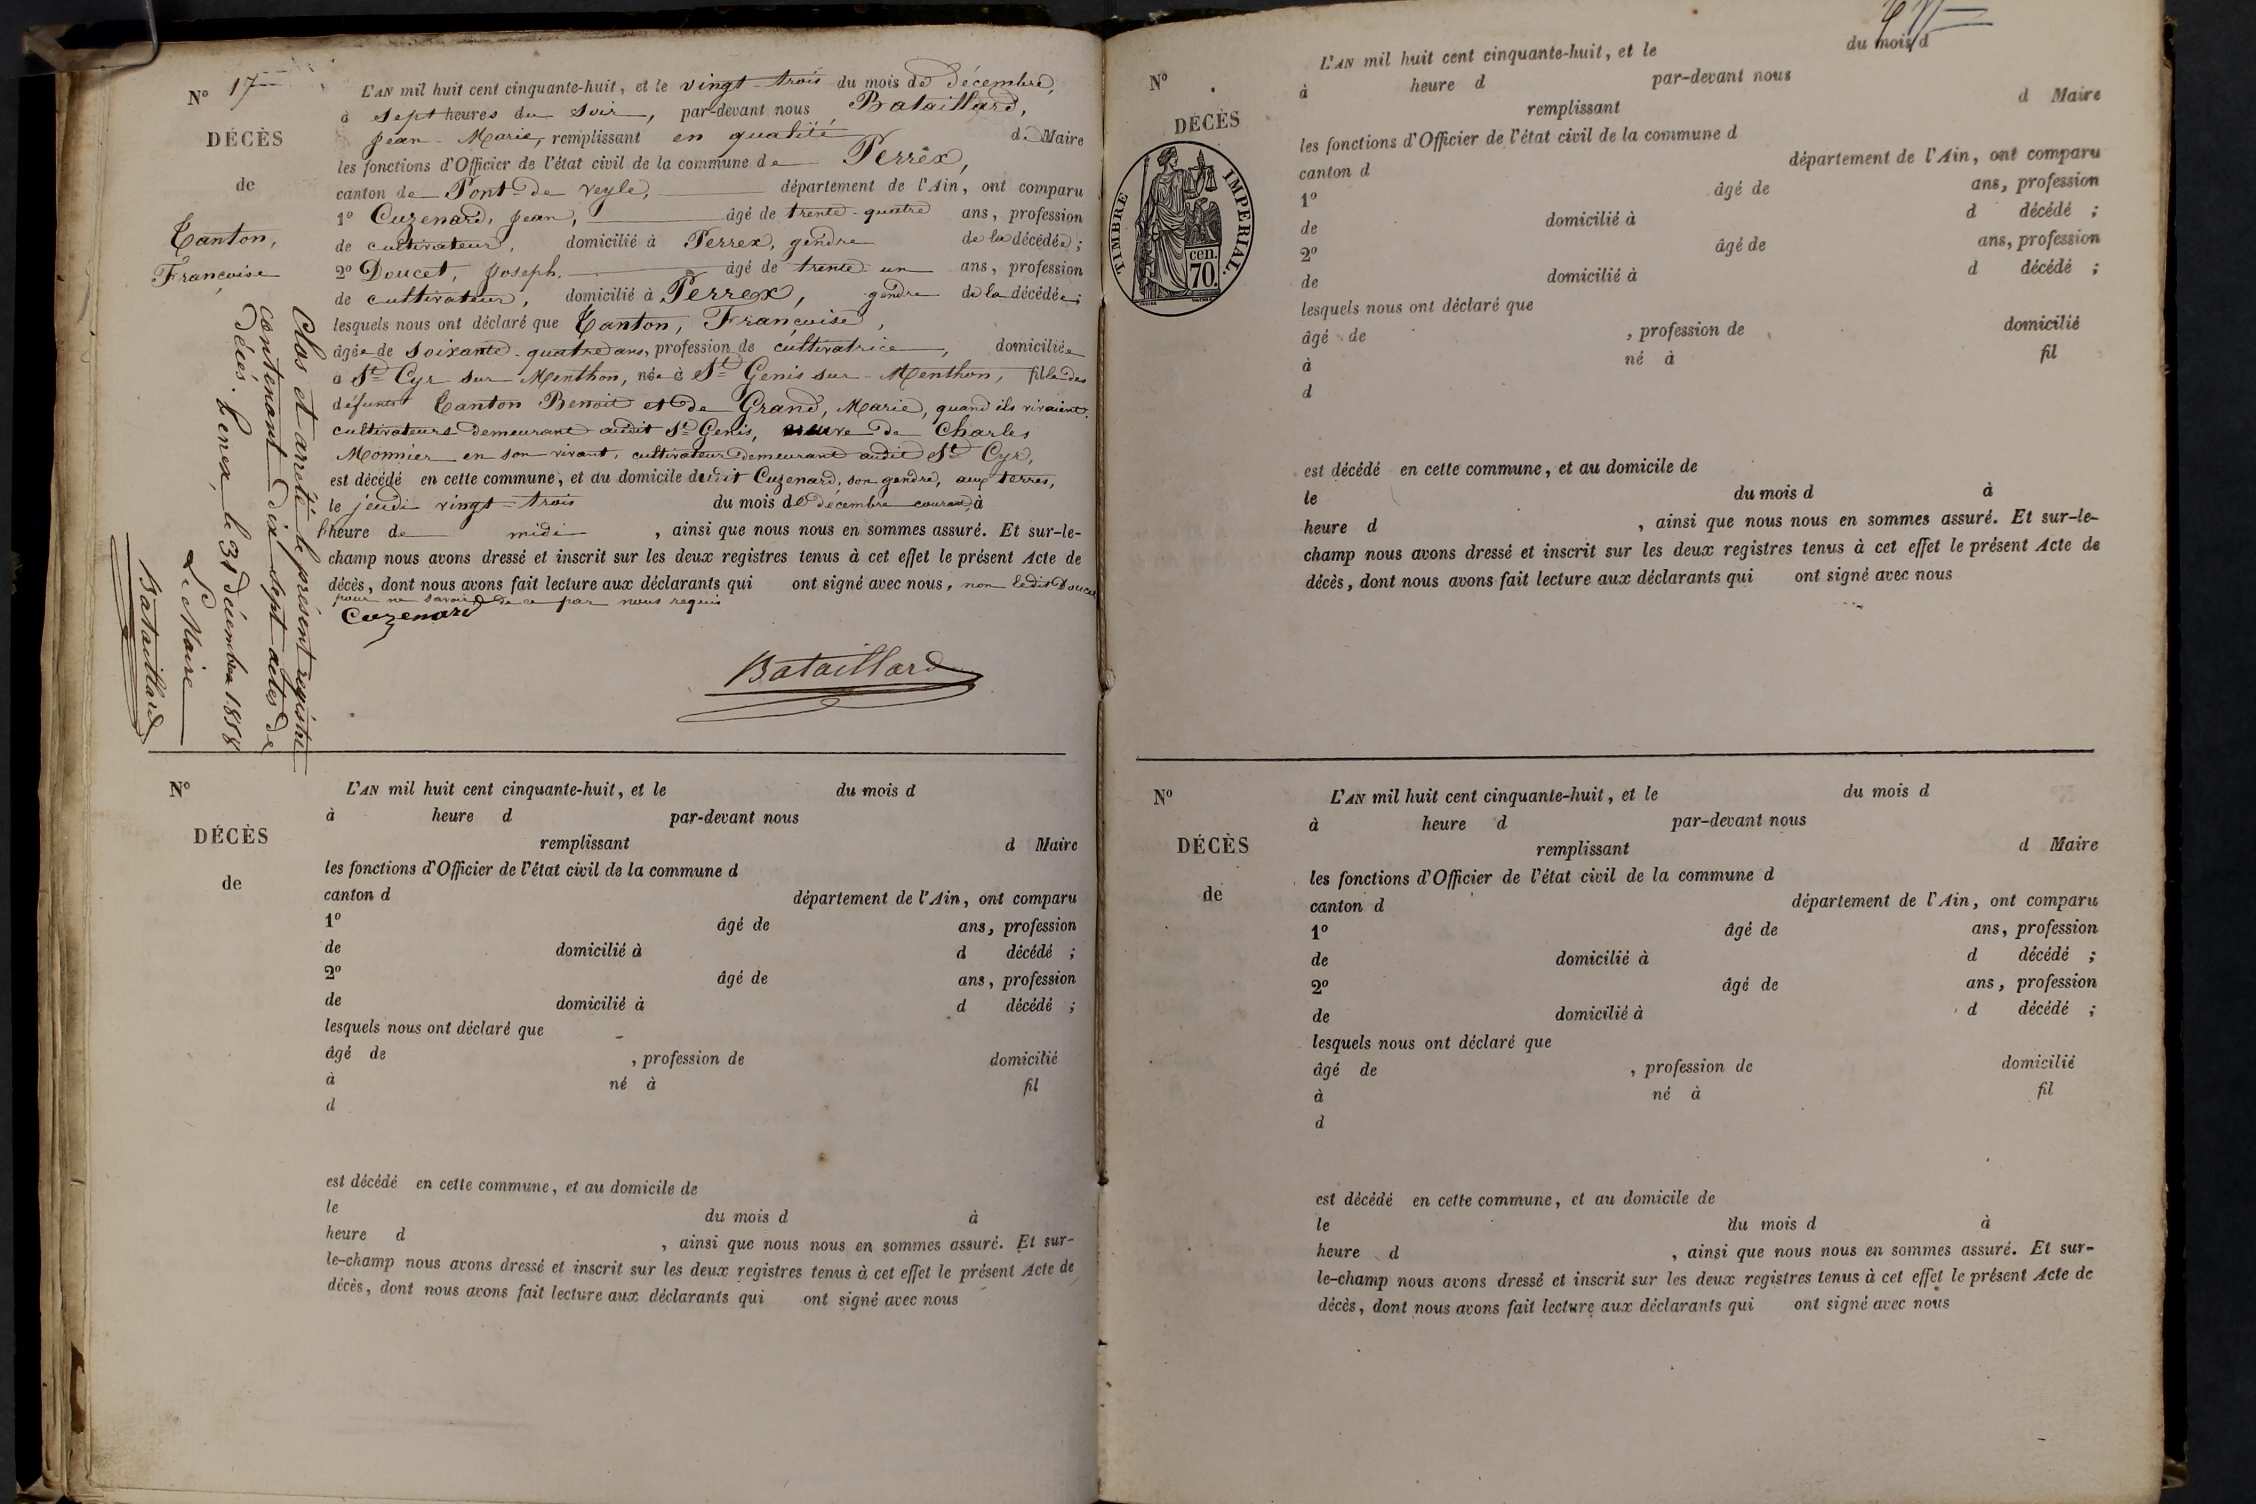 N° 17
DÉCÈS
de
Tanton,
Françoise
L'AN mil huit cent cinquante-huit, et le vingt-trois du mois de décembre,
à sept heures du soir, par-devant nous Bataillard,
Jean-Marie, remplissant en qualité de Maire
les fonctions d'Officier de l'état civil de la commune de Perrex,
canton de Pont-de-veyle, département de l'Ain, ont comparu
1° Cuzenard, Jean, âgé de trente-quatre ans, profession
de cultivateur, domicilié à Perrex, gendre de la décédée;
2° Doucet, Joseph. âgé de trente-un ans, profession
de cultivateur, domicilié à Perrex, gendre de la décédée;
lesquels nous ont déclaré que Tanton, Françoise,
âgée de soixante-quatre ans, profession de cultivatrice, domiciliée
à St Cyr sur Menthon, née à St Genis sur-Menthon, fille des
défunts Tanton Benoit et de Grand, Marie, quand ils vivaient
cultivateurs demeurant audit St Genis, veuve de Charles
Monnier en son vivant, cultivateur demeurant audit St Cyr,
est décédé en cette commune, et au domicile dudit Cuzenard, son gendre, aux terres,
le jeudi vingt-trois du mois de décembre courant, à
heure de midi, ainsi que nous nous en sommes assuré. Et sur-le-
champ nous avons dressé et inscrit sur les deux registres tenus à cet effet le présent Acte de
décès, dont nous avons fait lecture aux déclarants qui ont signé avec nous, non ledit Doucet
pour ne savoir de ce par nous requis
Cuzenard
Bataillard
Clos et arrêté le présent registre
contenant dix-sept actes de
décès. Perrex, le 31 décembre 1858
Le Maire
Bataillard
N°
DÉCÈS
de
L'AN mil huit cent cinquante-huit, et le du mois d
à heure d par-devant nous
remplissant d Maire
les fonctions d'Officier de l'état civil de la commune d
canton d département de l'Ain, ont comparu
1° âgé de ans, profession
de domicilié à d décédé ;
2° âgé de ans, profession
de domicilié à d décédé ;
lesquels nous ont déclaré que
âgé de , profession de domicilié
à né à fil
d
est décédé en cette commune, et au domicile de
le du mois d à
heure d , ainsi que nous nous en sommes assuré. Et sur-
le-champ nous avons dressé et inscrit sur les deux registres tenus à cet effet le présent Acte de
décès, dont nous avons fait lecture aux déclarants qui ont signé avec nous
N°
DÉCÈS
TIMBRE IMPERIAL.
cen.
70.
L'AN mil huit cent cinquante-huit, et le du mois d
à heure d par-devant nous
remplissant d Maire
les fonctions d'Officier de l'état civil de la commune d
canton d département de l'Ain, ont comparu
1° âgé de ans, profession
de domicilié à d décédé ;
2° âgé de ans, profession
de domicilié à d décédé ;
lesquels nous ont déclaré que
âgé de , profession de domicilié
à né à fil
d
est décédé en cette commune, et au domicile de
le du mois d à
heure d , ainsi que nous nous en sommes assuré. Et sur-le-
champ nous avons dressé et inscrit sur les deux registres tenus à cet effet le présent Acte de
décès, dont nous avons fait lecture aux déclarants qui ont signé avec nous
N°
DÉCÈS
de
L'AN mil huit cent cinquante-huit, et le du mois d
à heure d par-devant nous
remplissant d Maire
les fonctions d'Officier de l'état civil de la commune d
canton d département de l'Ain, ont comparu
1° âgé de ans, profession
de domicilié à d décédé ;
2° âgé de ans, profession
de domicilié à d décédé ;
lesquels nous ont déclaré que
âgé de , profession de domicilié
à né à fil
d
est décédé en cette commune, et au domicile de
le du mois d à
heure d , ainsi que nous nous en sommes assuré. Et sur-
le-champ nous avons dressé et inscrit sur les deux registres tenus à cet effet le présent Acte de
décès, dont nous avons fait lecture aux déclarants qui ont signé avec nous